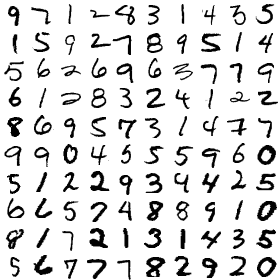 9 7 1 2 8 3 1 4 3 5
1 5 9 2 7 8 9 5 1 4
5 6 2 6 9 6 3 7 7 9
6 1 2 8 3 2 4 1 2 2
8 6 9 5 7 3 1 4 7 7
9 9 0 4 5 5 5 9 6 0
5 1 2 2 9 3 4 4 2 5
6 6 5 7 4 8 8 9 1 0
8 1 7 2 1 3 1 4 3 5
5 6 7 7 7 8 2 9 2 0